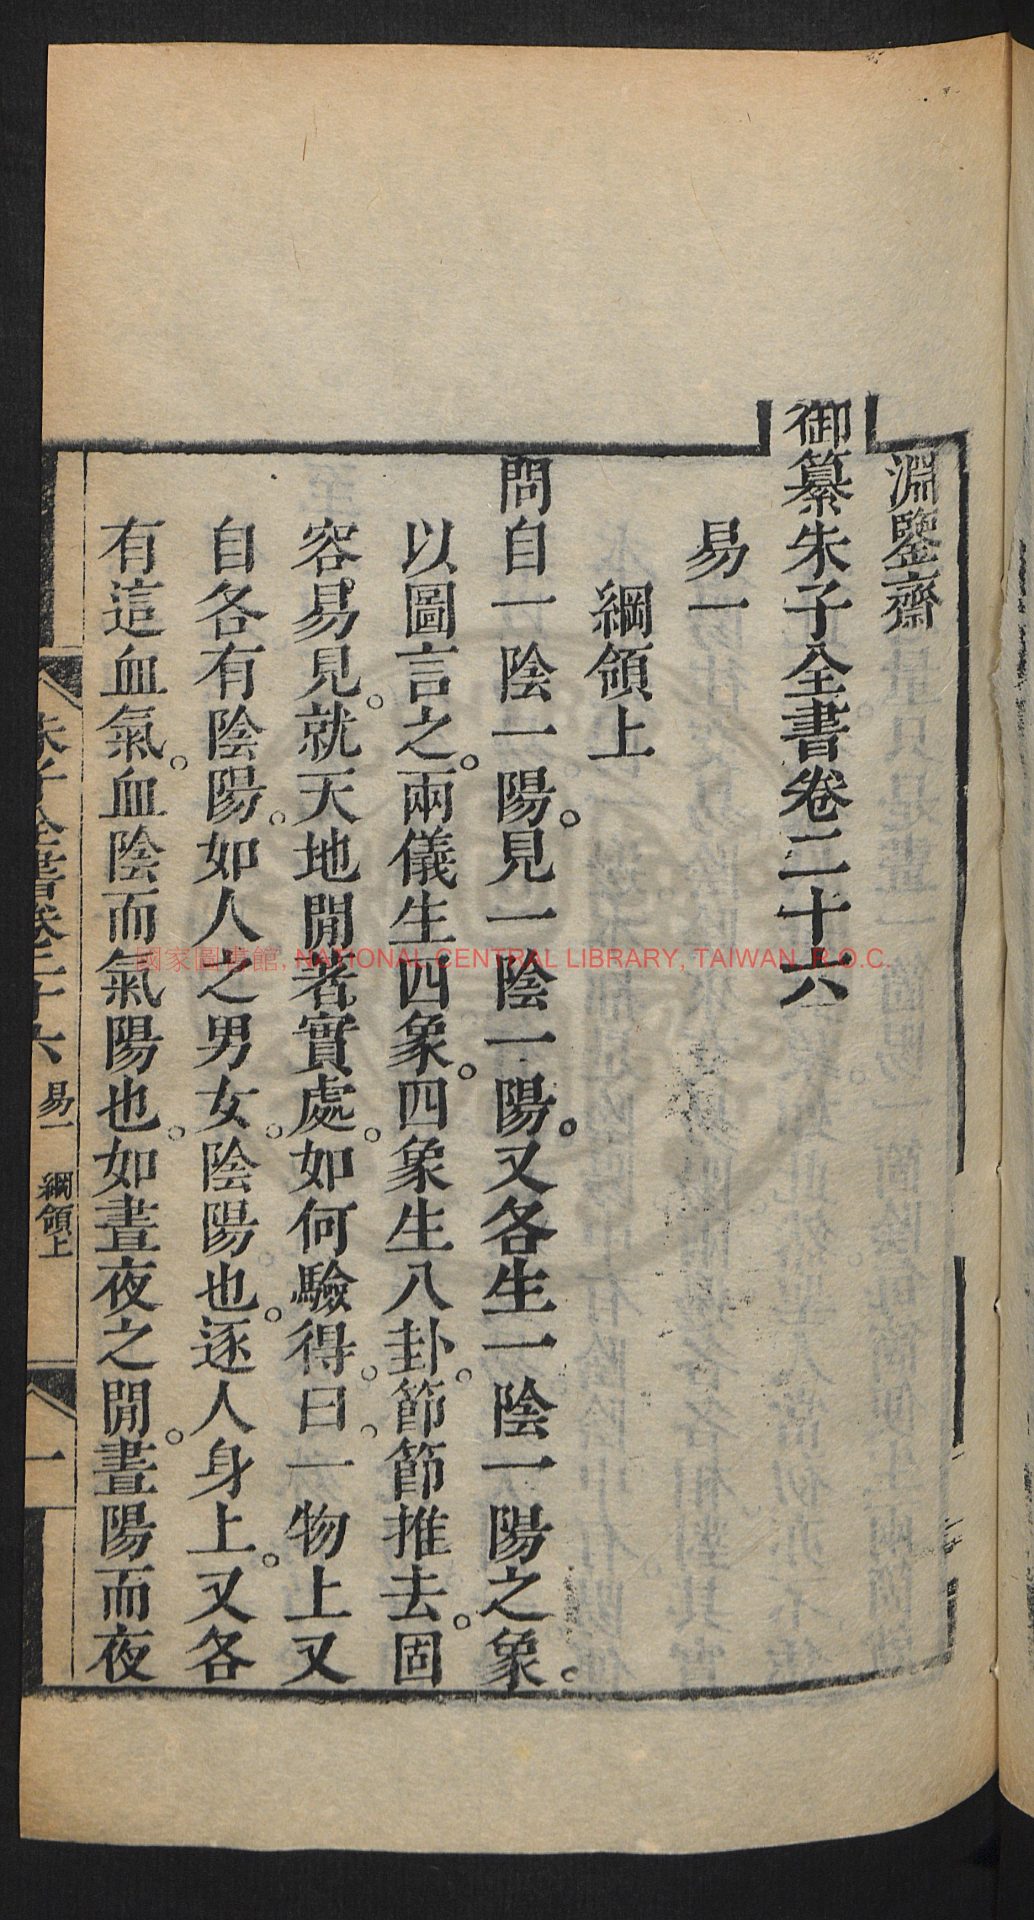 淵鑒齋
御纂朱子全書卷二十六
易一
綱領上
問自一陰一陽。見一陰一陽。又各生一陰一陽之象。
以圖言之。兩儀生四象。四象生八卦。節節推去。固
容易見。就天地閒著實處。如何驗得。曰。一物上又
自各有陰陽。如人之男女。陰陽也。逐人身上。又各
有這血氣。血陰而氣陽也。如晝夜之閒。晝陽而夜
朱子全書卷二十六 易一 綱領上 一
國家圖書館, NATIONAL CENTRAL LIBRARY, TAIWAN, R.O.C.